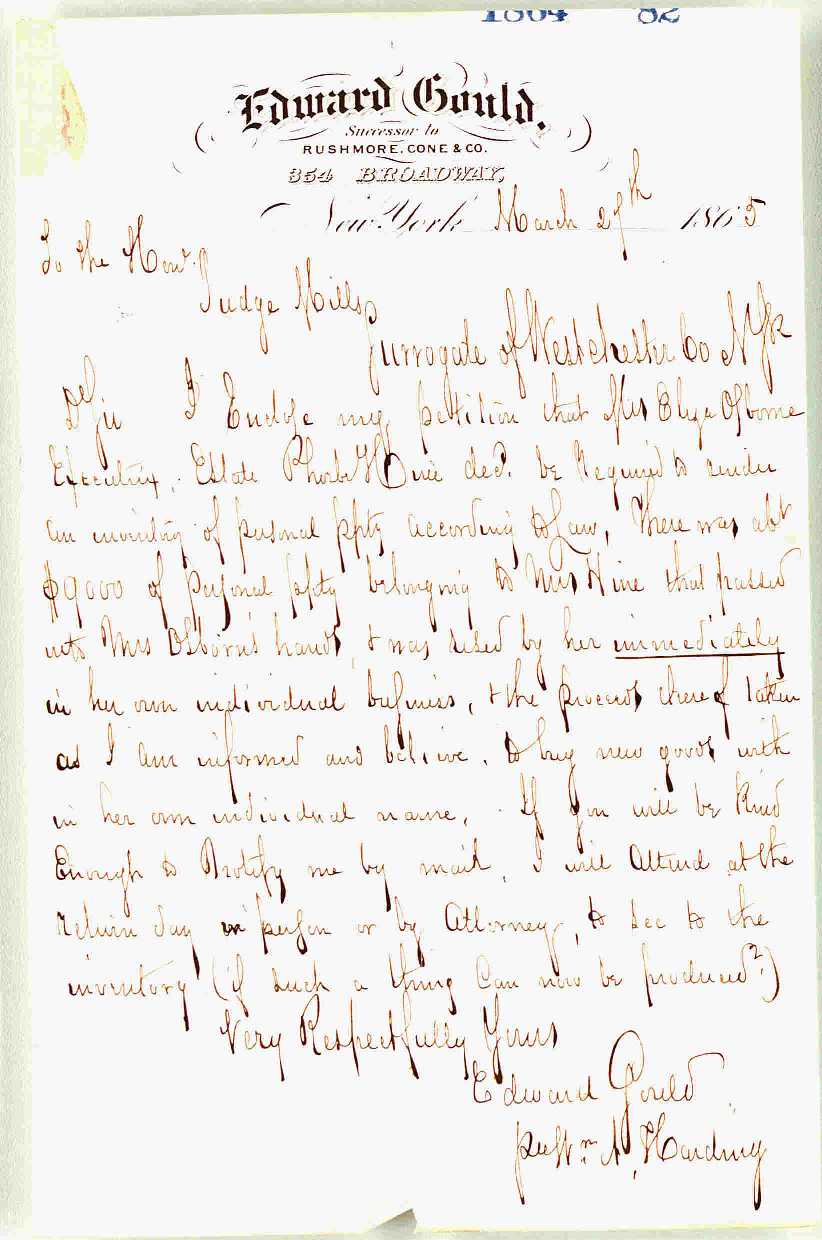 1864 82
Edward Gould,
Successor to
RUSHMORE, CONE & CO.
354 BROADWAY,
New York March 27th 1865
To the Hon.
Judge Mills
Surrogate of Westchester Co N Yk
Dr Sir I Enclose my petition that Mrs Eliza Osborne
Executrix, Estate Phoebe Hine decd. be Required to render
an inventory of personal ppty according to Law, There was abt
$9000 of Personal ppty belonging to Mrs Hine that passed
into Mrs Osborn's hands, & was used by her immediately
in her own individual business, & the proceeds thereof taken
as I am informed and believe, to buy new goods with
in her own individual name, If you will be Kind
Enough to Notify me by mail, I will Attend at the
return day in person or by Attorney, to see to the
inventory (if such a thing Can now be produced?)
Very Respectfully Yours
Edward Gould
per Wm A. Harding